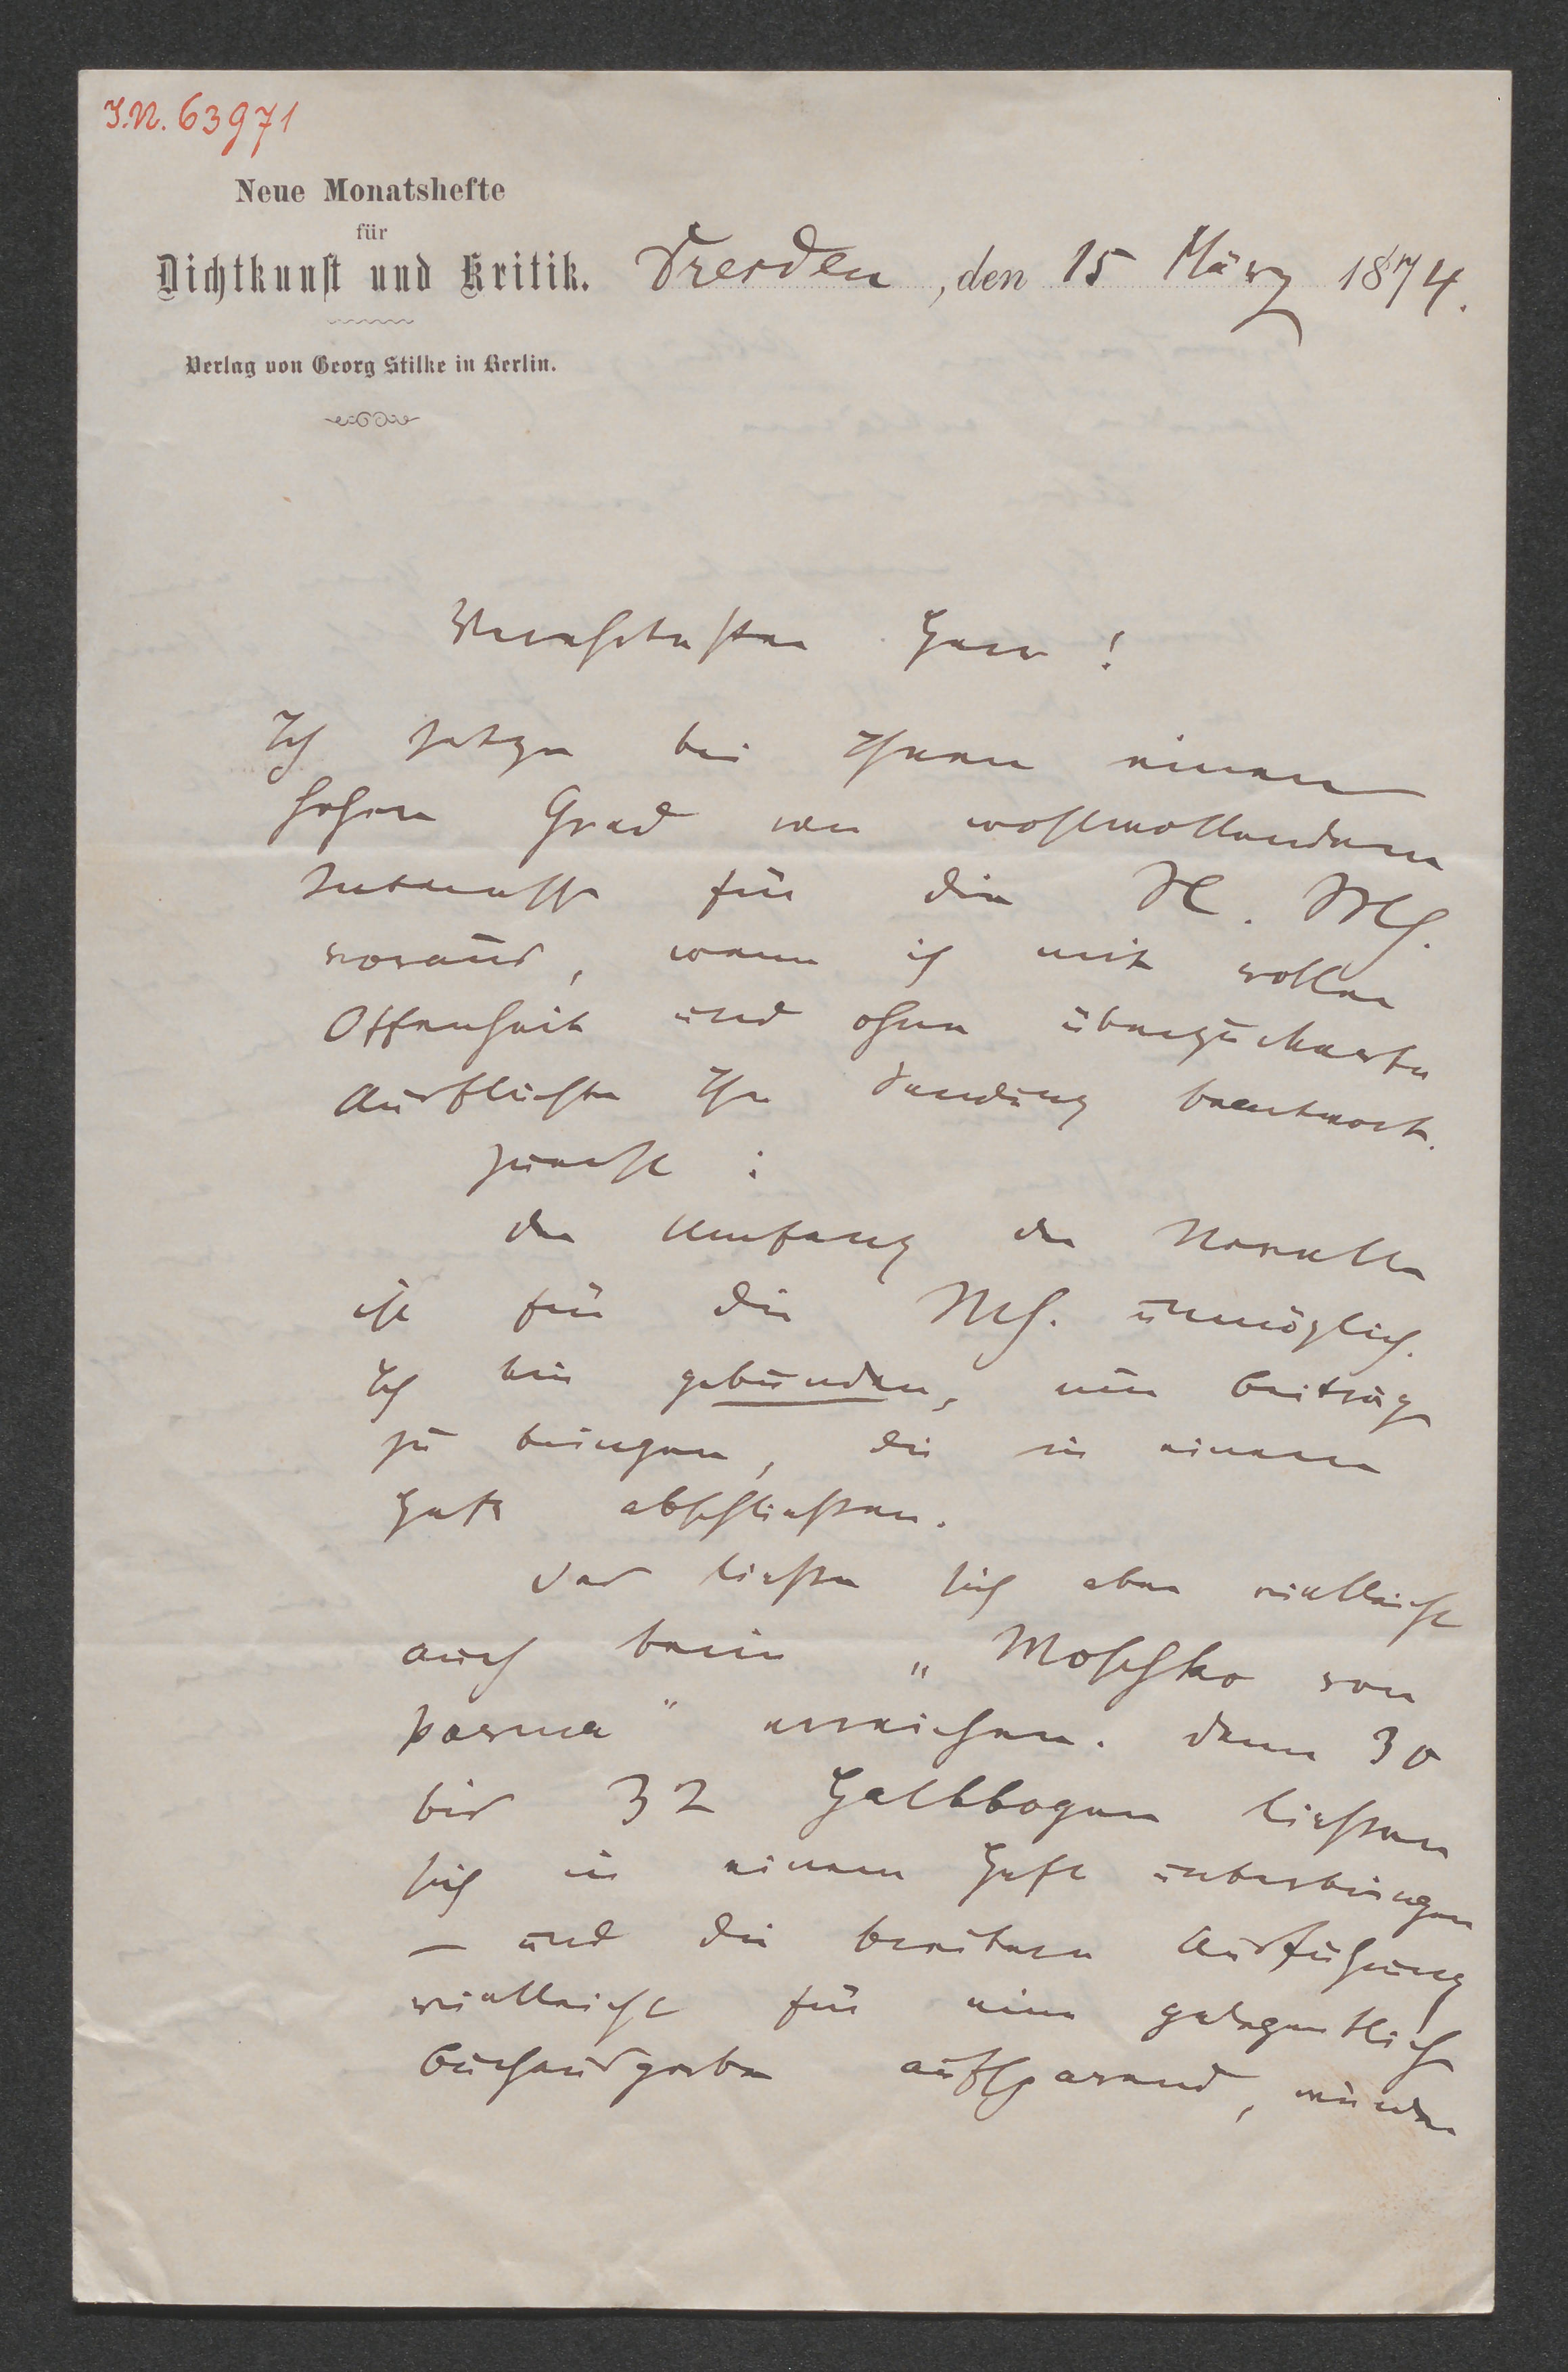 J.N. 63971
Neue Monatshefte
für
Dichtkunst und Kritik.
Dresden, den 15 März 1874.
Verlag von Georg Stilke in Berlin.
Verehrtester Herr!
Ich setze bei Ihnen einen
hohen Grad von wohlwollendem
Interesse für die N. Mh.
voraus, wenn ich mit voller
Offenheit und ohne überzuckerte
Ausflüchte Ihre Sendung beantworte.
Zunächst:
der Umfang der Novelle
ist für die Mh. unmöglich.
Ich bin gebunden, nur Beiträge
zu bringen, die in einem
Hefte abschließen.
Das ließe sich aber vielleicht
auch beim „Moschko von
Parma“ erreichen. Denn 30
bis 32 Halbbogen ließen
sich in einem Heft unterbringen
– und die breitere Ausführung
vielleicht für eine gelegentliche
Buchausgabe aufsparend, würden